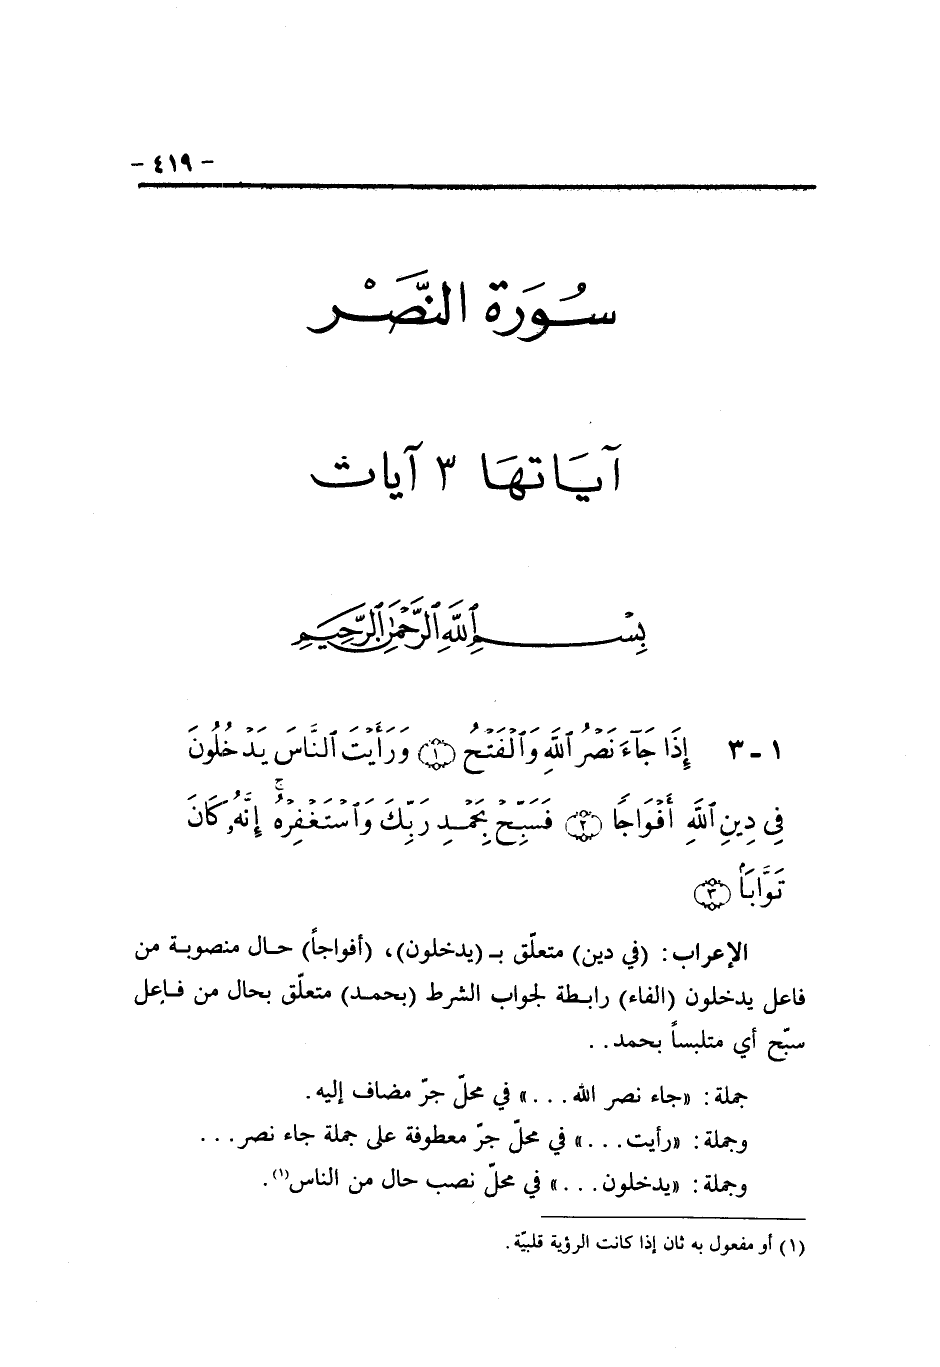 - ٤١٩ -
سُورَة النَّصَـْر
آيَاتهَا ٣ آيات
بِسْمِ ٱللَّهِ ٱلرَّحْمَٰنِ ٱلرَّحِيمِ
١ - ٣ إِذَا جَآءَ نَصْرُ ٱللَّهِ وَٱلْفَتْحُ ۝١ وَرَأَيْتَ ٱلنَّاسَ يَدْخُلُونَ
فِى دِينِ ٱللَّهِ أَفْوَاجًا ۝٢ فَسَبِّحْ بِحَمْدِ رَبِّكَ وَٱسْتَغْفِرْهُ ۚ إِنَّهُۥ كَانَ
تَوَّابَۢا ۝٣
الإعراب: (في دين) متعلّق بـ (يدخلون)، (أفواجاً) حال منصوبة من
فاعل يدخلون (الفاء) رابطة لجواب الشرط (بحمد) متعلّق بحال من فاعل
سبّح أي متلبساً بحمد..
جملة: «جاء نصر الله...» في محلّ جرّ مضاف إليه.
وجملة: «رأيت...» في محلّ جرّ معطوفة على جملة جاء نصر...
وجملة: «يدخلون...» في محلّ نصب حال من الناس(١).
(١) أو مفعول به ثان إذا كانت الرؤية قلبيّة.